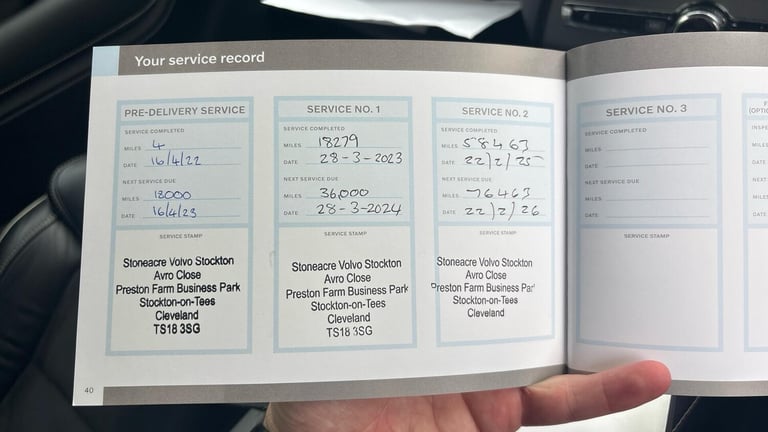 Your service record
PRE-DELIVERY SERVICE
SERVICE COMPLETED
MILES 4
DATE 16/4/22
NEXT SERVICE DUE
MILES 18000
DATE 16/4/23
SERVICE STAMP
Stoneacre Volvo Stockton
Avro Close
Preston Farm Business Park
Stockton-on-Tees
Cleveland
TS18 3SG
SERVICE NO. 1
SERVICE COMPLETED
MILES 18279
DATE 28-3-2023
NEXT SERVICE DUE
MILES 36,000
DATE 28-3-2024
SERVICE STAMP
Stoneacre Volvo Stockton
Avro Close
Preston Farm Business Park
Stockton-on-Tees
Cleveland
TS18 3SG
SERVICE NO. 2
SERVICE COMPLETED
MILES 58463
DATE 22/2/25
NEXT SERVICE DUE
MILES 76463
DATE 22/2/26
SERVICE STAMP
Stoneacre Volvo Stockton
Avro Close
Preston Farm Business Par
Stockton-on-Tees
Cleveland
SERVICE NO. 3
SERVICE COMPLETED
MILES
DATE
NEXT SERVICE DUE
MILES
DATE
SERVICE STAMP
40